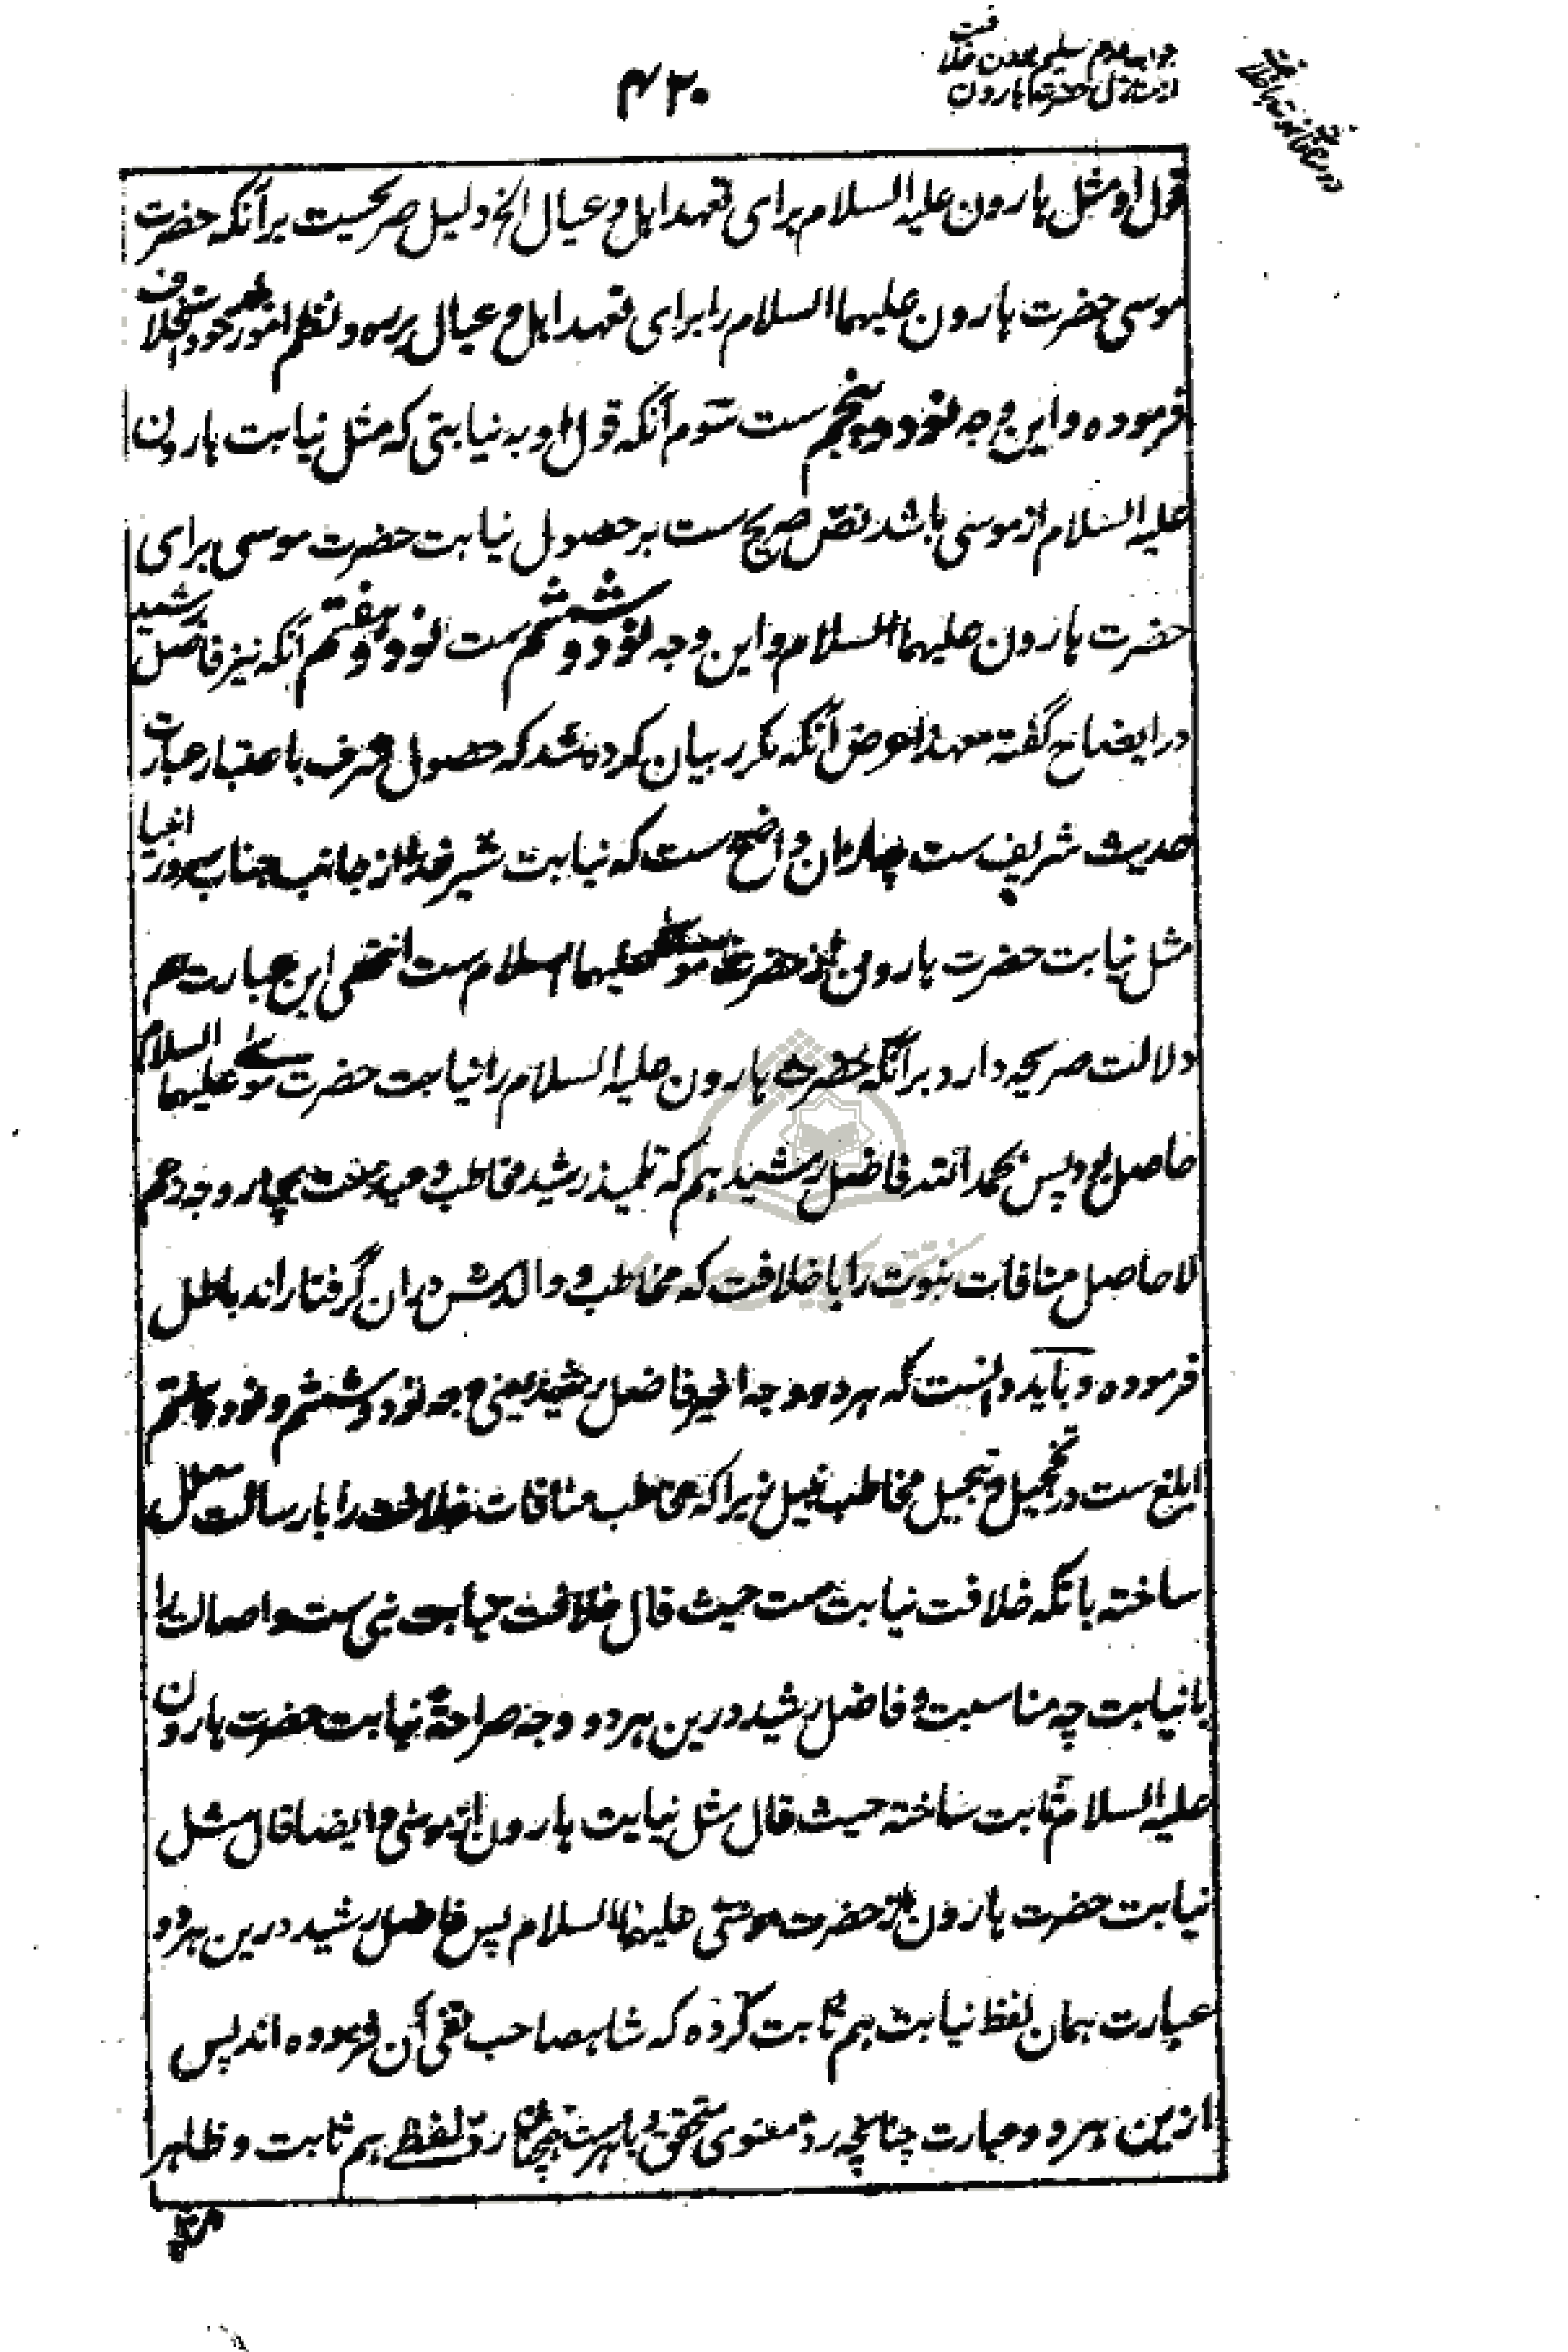 جواب عدم تسلیم بودن خلافت
از منازل حضرت هارون
۴۲۰
قول او مثل هارون علیه السلام برای تعهد اهل و عیال الخ دلیل صریحست بر آنکه حضرت
موسی حضرت هارون علیهما السلام را برای تعهد اهل و عیال پرسه و نظم امور خود استخلاف
فرموده و این وجه نود و پنجم ست سوم آنکه قول او به نیابتی که مثل نیابت هارون
علیه السلام از موسی باشد نص صریح ست بر حصول نیابت حضرت موسی برای
حضرت هارون علیهما السلام و این وجه نود و ششم ست نود و هفتم آنکه نیز فاضل رشید
در ایضاح گفته معهذا عرض آنکه مکرر بیان کرده شد که حصول شرف باعتبار عبارت
حدیث شریف ست چه ازان واضح ست که نیابت شیر خدا از جانب جناب سرور انبیا
مثل نیابت حضرت هارون از حضرت موسی علیهما السلام ست انتهی این عبارت هم
دلالت صریحه دارد بر آنکه حضرت هارون علیه السلام را نیابت حضرت موسی علیهما السلام
حاصل بود پس بحمد الله فاضل رشید هم که تلمیذ رشید مخاطب وحید ست بچار وجه زعم
لا حاصل منافات نبوت را با خلافت که مخاطب و والدش دران گرفتار اند باطل
فرموده و باید دانست که هر دو وجه اخیر فاضل رشید یعنی وجه نود و ششم و نود و هفتم
ابلغ ست در تخجیل و تبجیل مخاطب نبیل زیرا که مخاطب منافات خلافت را با رسالت معلل
ساخته بآنکه خلافت نیابت ست حیث قال خلافت نیابت نبی ست و اصالت را
با نیابت چه مناسبت و فاضل رشید درین هر دو وجه صراحة نیابت حضرت هارون
علیه السلام ثابت ساخته حیث قال مثل نیابت هارون از موسی و ایضا قال مثل
نیابت حضرت هارون از حضرت موسی علیهما السلام پس فاضل رشید درین هر دو
عبارت همان لفظ نیابت هم ثابت کرده که شاهصاحب نفی آن فرموده اند پس
ازین هر دو عبارت چنانچه رد معنوی متحقق و باهرست همچنان رد لفظی هم ثابت و ظاهر